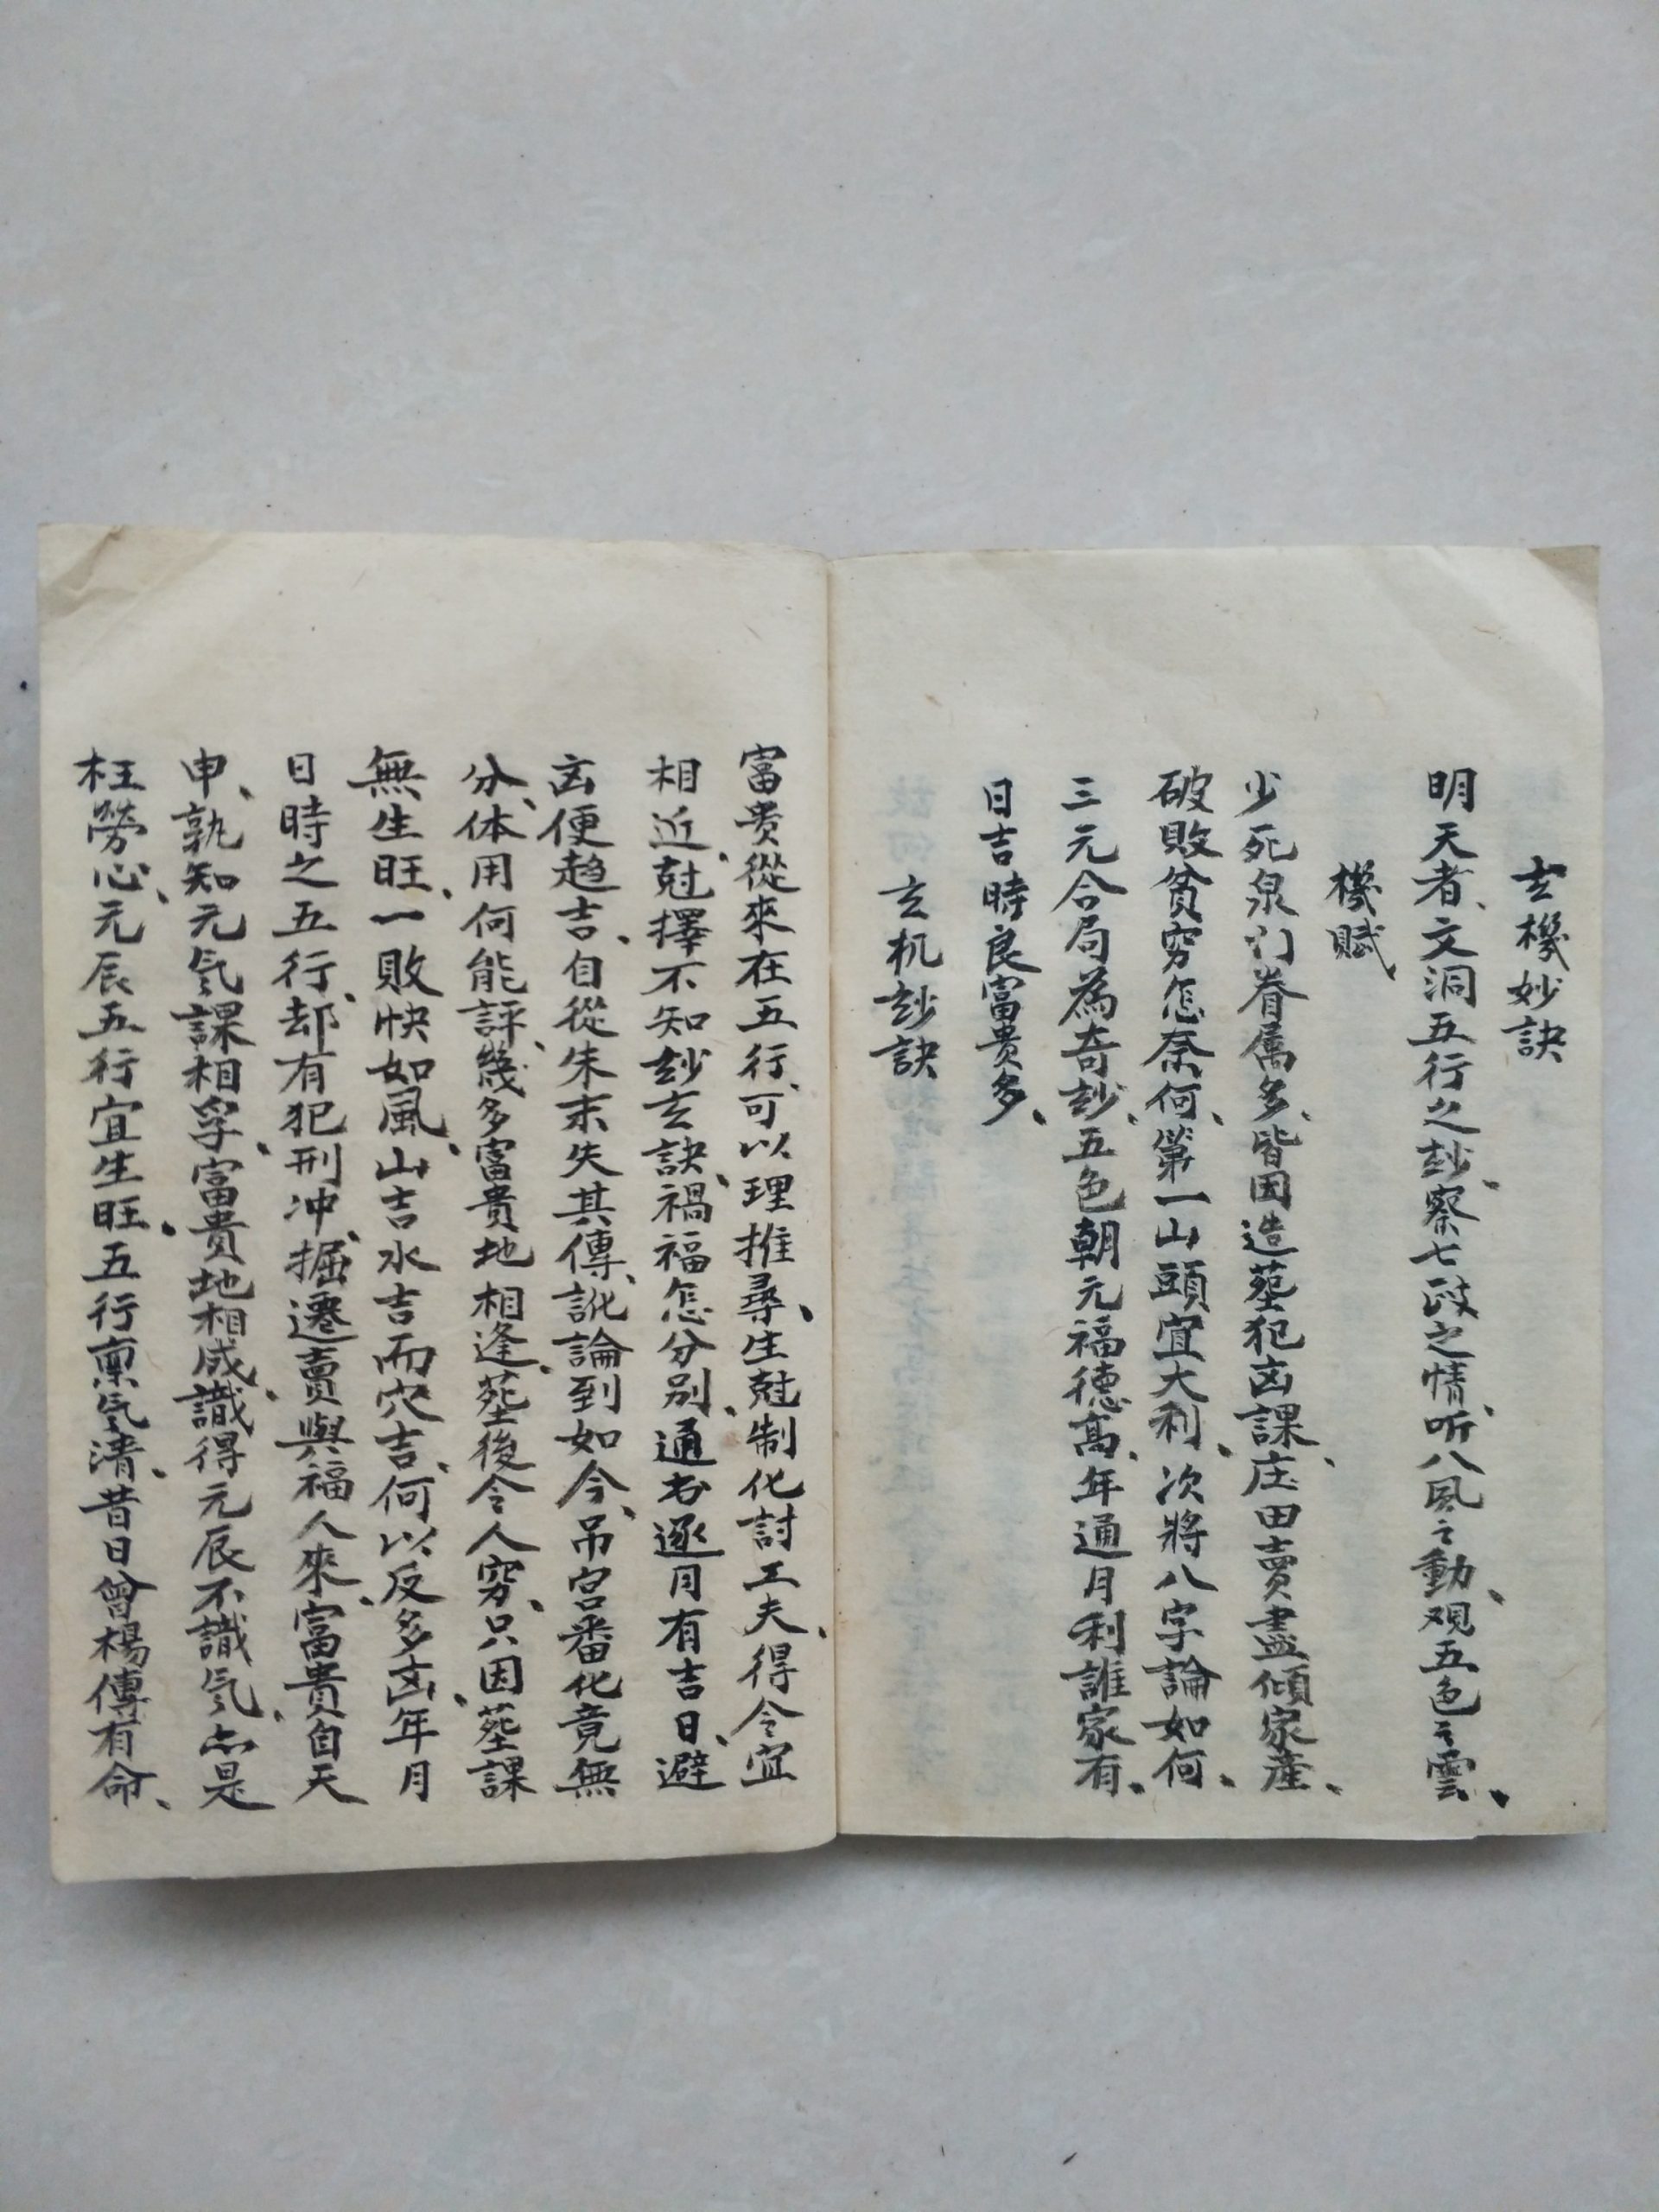 玄機妙訣
明天者、文洞五行之玅、察七政之情、听八風之動、观五色之雲、
機賦
少死泉门眷属多、皆因造塟犯凶課、庄田賣盡傾家産、
破敗貧穷怎奈何、第一山頭宜大利、次將八字論如何、
三元合局為奇玅、五色朝元福德高、年通月利誰家有、
日吉時良富貴多、
玄机玅訣
富貴從來在五行、可以理推尋、生尅制化討工夫、得令宜
相近、尅擇不知玅玄訣、禍福怎分别、通书逐月有吉日、避
凶便趋吉、自從朱末失其傳、訛論到如今、吊宫番化竟無
分、体用何能評、幾多富貴地相逢、塟後令人窮、只因塟課
無生旺、一敗快如風、山吉水吉而穴吉、何以反多凶、年月
日時之五行、却有犯刑冲、掘遷賣與福人來、富貴自天
申、孰知元气課相孚、富貴地相成、識得元辰不識气、亦是
枉勞心、元辰五行宜生旺、五行禀气清、昔日曾楊傳有命、